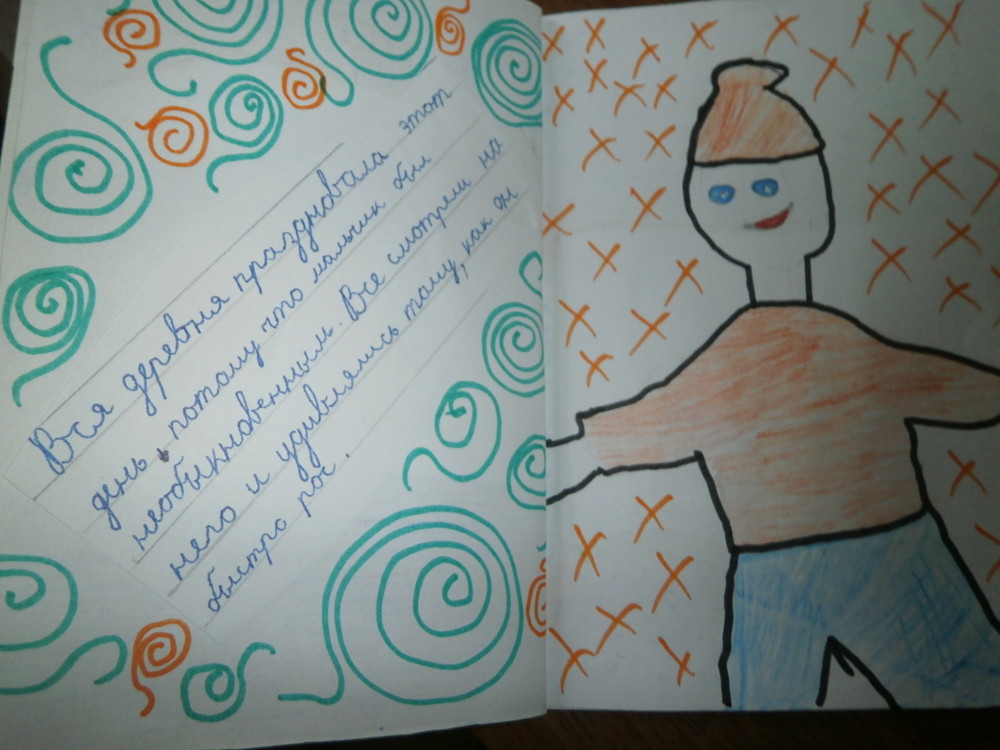 Вся деревня праздновала этот
день, потому что мальчик был
необыкновенным. Все смотрели на
него и удивлялись тому, как он
быстро рос.